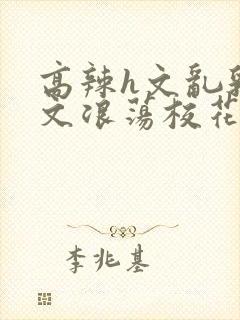 高辣h文乱乳
文浪荡校花
李兆基